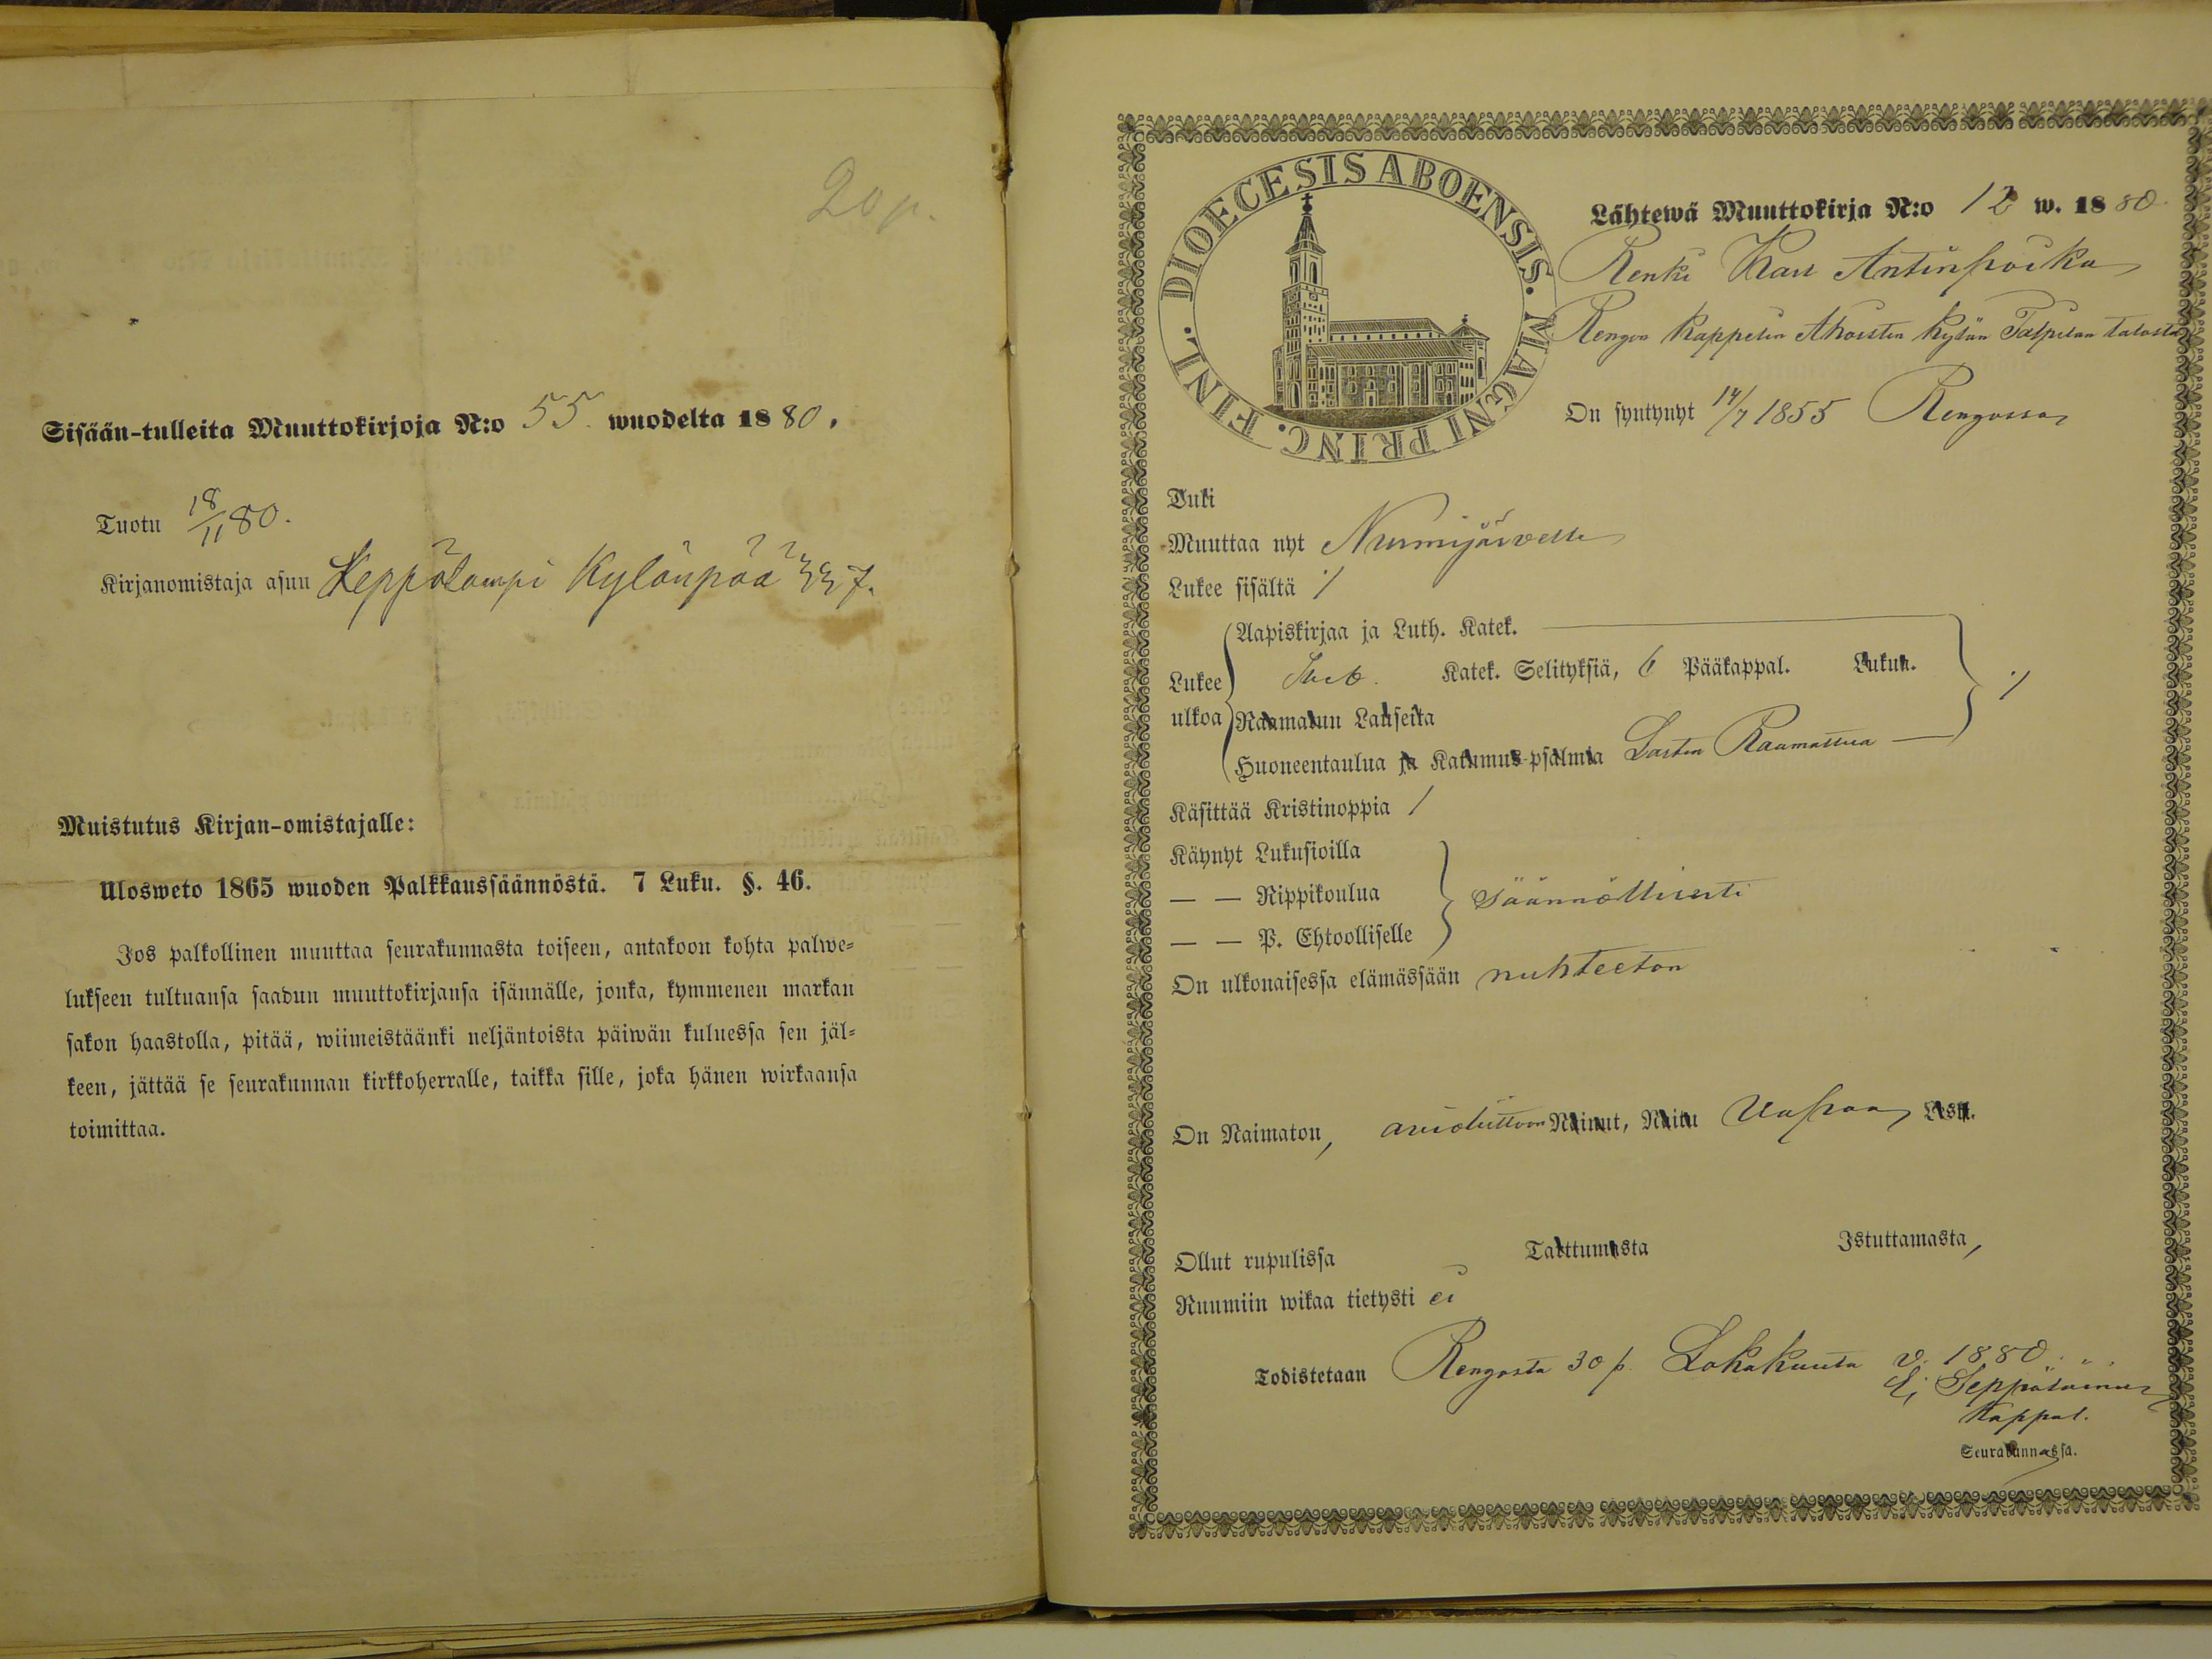 20 p.
Sisään-tulleita Muuttokirjoja N:o 55. wuodelta 1880.
Tuotu 18/11 80.
Kirjanomistaja asuu Leppälampi Kylänpää 337.
Muistutus Kirjan-omistajalle:
Ulosweto 1865 wuoden Palkkaussäännöstä. 7 Luku. §. 46.
Jos palkollinen muuttaa seurakunnasta toiseen, antakoon kohta palwe=
lukseen tultuansa saadun muuttokirjansa isännälle, jonka, kymmenen markan
sakon haastolla, pitää, wiimeistäänki neljäntoista päiwän kuluessa sen jäl=
keen, jättää se seurakunnan kirkkoherralle, taikka sille, joka hänen wirkaansa
toimittaa.
DIOECESIS ABOENSIS. MAGNI PRINC. FINL.
Lähtewä Muuttokirja N:o 12 w. 1880
Renki Karl Antinpoika
Rengon Kappelin Ahoisten kylän talosta
On syntynyt 14/7 1855 Rengossa
Tuli
Muuttaa nyt Nurmijärvelle
Lukee sisältä /
Lukee ulkoa
Aapiskirjaa ja Luth. Katek.
Sveb. Katek. Selityksiä, 6 Pääkappal. Lukun.
Raamatun Lauseita
Huoneentaulua ja Katumus-psalmia Lasten Raamattua
Käsittää Kristinoppia /
Käynyt Lukusioilla
— — Rippikoulua säännöllisesti
— — P. Ehtoolliselle
On ulkonaisessa elämässään nuhteeton
On Naimaton, avioliittoon Nainut, Naitu Vapaa, Lesti.
Ollut rupulissa Tarttumasta Istuttamasta,
Ruumiin wikaa tietysti ei
Todistetaan Rengosta 30 p. Lokakuuta v. 1880.
Seppälainen
Kappal.
Seurakunnassa.